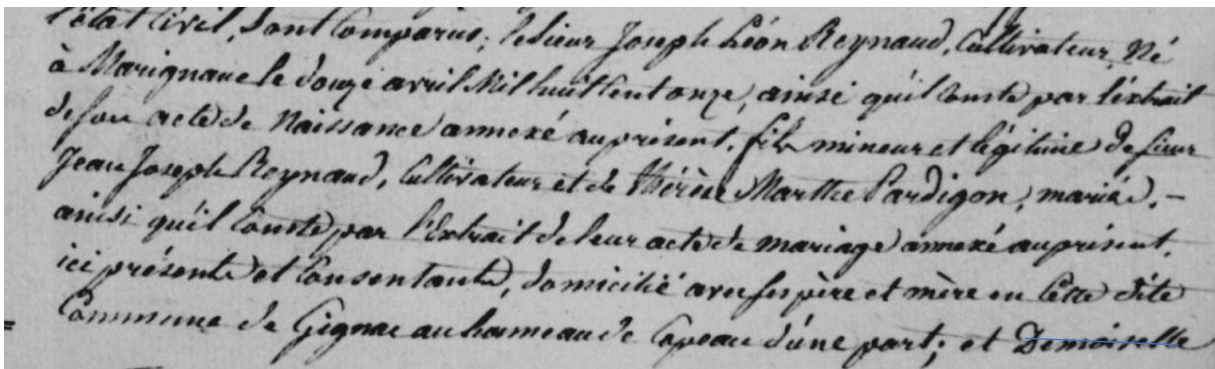 l'état Civil, Sont Comparus; le Sieur Joseph Léon Reynaud, Cultivateur, Né
à Marignane le douze avril Mil huit Cent onze, ainsi qu'il Conste par l'extrait
de son acte de Naissance annexé au présent, fils mineur et légitime de Sieur
Jean Joseph Reynaud, Cultivateur et de Thérèse Marthe Pardigon, mariés, -
ainsi qu'il Conste par l'Extrait de leur acte de mariage annexé au présent,
ici présents et Consentants, domicilié avec ses père et mère en Cette dite
Commune de Gignac au hameau de Capeau d'une part; et Demoiselle